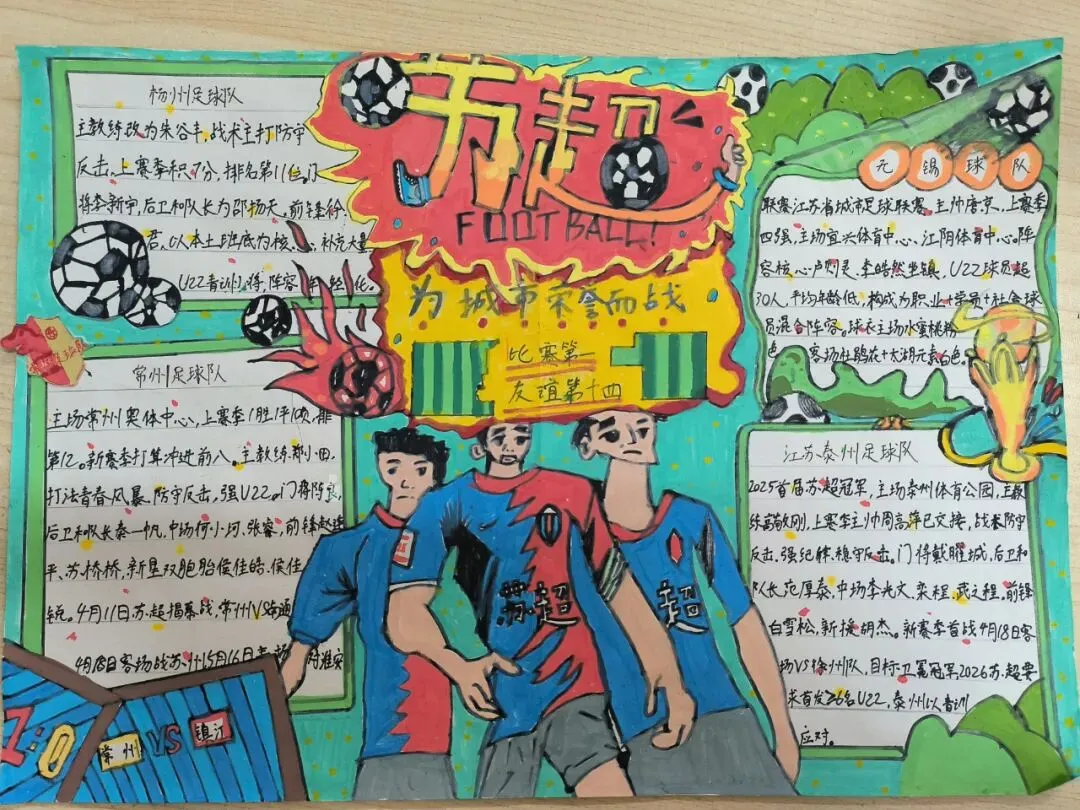 苏超
FOOTBALL!
为城市荣誉而战
比赛第一
友谊第十四
扬州足球队
主教练改为朱谷丰,战术主打防守
反击,上赛季积7分,排名第11位。门
将李新宇,后卫和队长为邵扬天。前锋徐
君,以本土班底为核心,补充大量
U22青训小将,阵容年轻化。
常州足球队
主场常州奥体中心,上赛季1胜1平10负,排
第12。新赛季打算冲进前八。主教练郑小田
打法青春风暴、防守反击,强U22。门将陈良,
后卫和队长秦一帆,中场何小珂、张睿,前锋
平、苏桥桥,新星双胞胎侯佳皓、侯佳
锐。4月11日苏超揭幕战,常州VS南通
4月18日客场战苏州5月16日
无锡球队
联赛江苏省城市足球联赛。主帅唐京,上赛季
四强,主场宜兴体育中心、江阴体育中心。阵
容核心卢则灵、李皓然坐镇,U22球员超
30人,平均年龄低,构成为职业+学员+社会球
员混合阵容。球衣主场水蜜桃粉
色,客场杜鹃花+太湖元素白色。
江苏泰州足球队
2025首届苏超冠军,主场泰州体育公园,主教
练高敬刚,上赛季主帅周高萍已交接,战术防守
反击。强纪律、稳守反击。门将戴曜城,后卫和
队长范厚泰,中场李光文、栾程、武之程。前锋
白雪松,新援胡杰。新赛季首战4月18日客
场VS徐州队,目标:卫冕冠军2026苏超要
求首发≥6名U22,泰州以青训
应对。
苏超
超
1:0
常州 VS 镇江